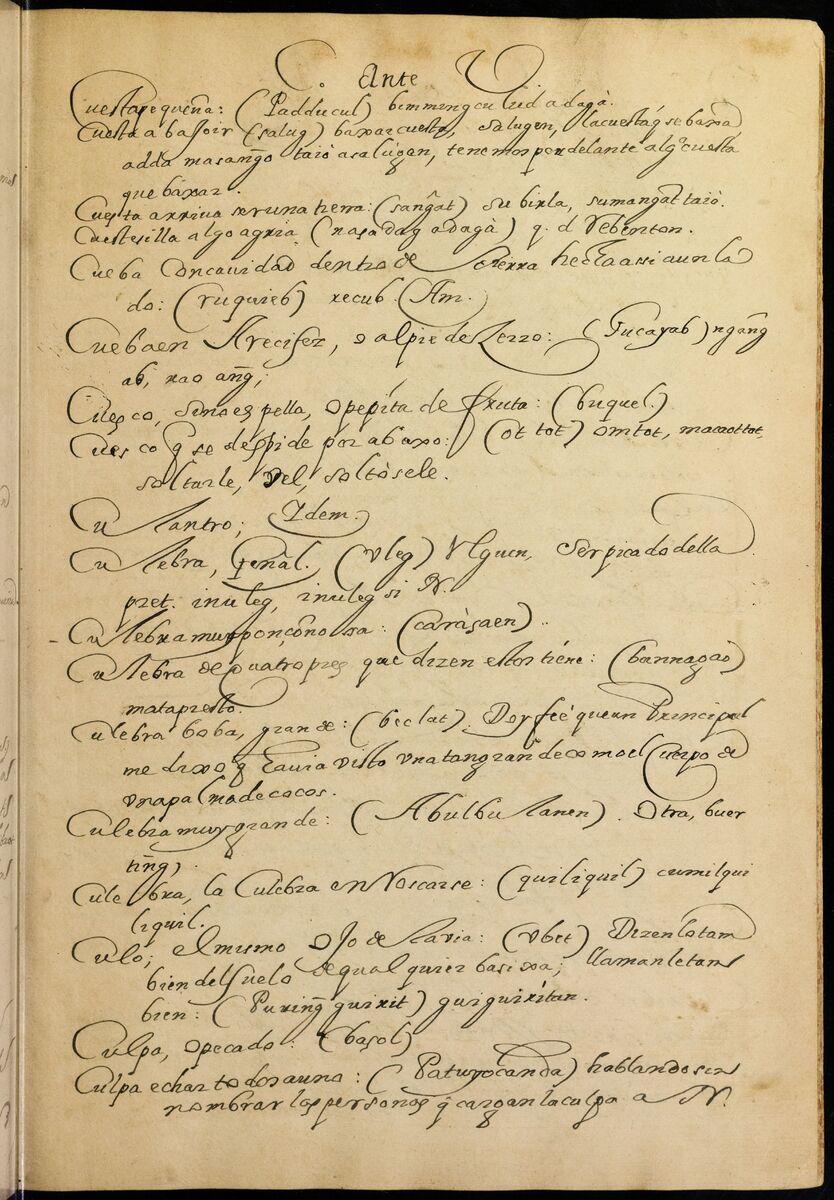 C. Ante V
Cuesta pequeña: (Padducul) bimmingculud adagà.
Cuesta abaJo ir (salug) baxar cuesta, salugen, la cuesta q̃ se baxa
adda masang̃o taiò asalúgan, tenemos por delante algª cuesta
que baxar.
Cuesta arriua ser una tierra: (sang̃at) subirla, sumang̃at taiò.
Cuestesilla algo agria (nasadag adagà) q. d Vbenton.
Cueba Concauidad dentro de tierra hecha assi a un la
do: (ruquieb) recub. (Am.)
Cueba en Arecifez, o al pie de Zerro: (Tucayab) ngang̃
ab, rao ang̃;
Cuesco, sino es pella, o pepíta de fruta: (buquel.)
Cuesco q̃ se despide por abaxo: (ot tot) om̃tot, macaottot,
soltarle, vel, soltòsele.
Culantro; Idem.
Culebra, g̃enal. (vleg) Vlguen, Ser picado della
pret. inuleg, inuleg si N.
Culebra muy ponçoñosa: (caràsaen)..
Culebra de quatro pies que dizen estos tiene: (bannagao)
mata presto.
Culebra boba, grande: (beclat). Doy feé que un Principal
me dixo q̃ hauia visto vna tan grande como el Cuerpo de
vna palma de cocos.
Culebra muy grande: (Abulbulanen). Otra, buer
ting̃).
Culebra, la Culebra enRoscarse: (quiliquil) cumilqui
liquil.
Culo; el mismo OJo de la via: (vbet) Dizenlo tam
bien del suelo de qualquier basixa; llamanle tam
bien: (Puring̃ guirit) guiguirítan.
Culpa, o pecado: (basol)
Culpa echar todos a uno: (Patuyocanda) hablando sin
nombrar las personas q̃ cargan la culpa a N.